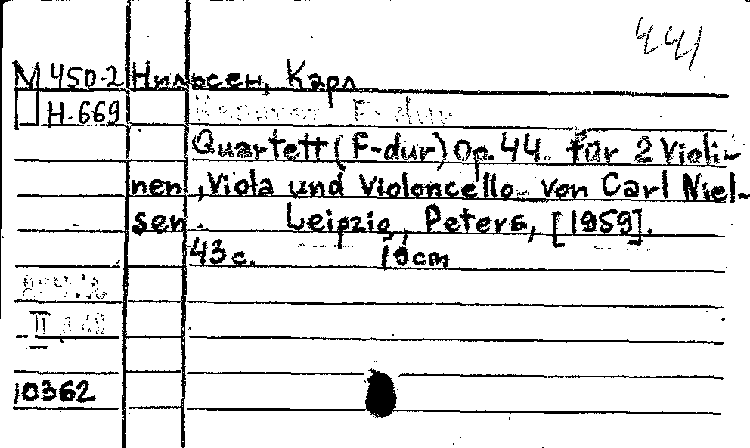 441
М 450-2 Нильсен, Карл
Н-669
F-dur
Quartett (F-dur) Op. 44. für 2 Violi-
nen, Viola und Violoncello von Carl Niel-
sen. Leipzig, Peters, [1959].
43 с. 19 cm
10362